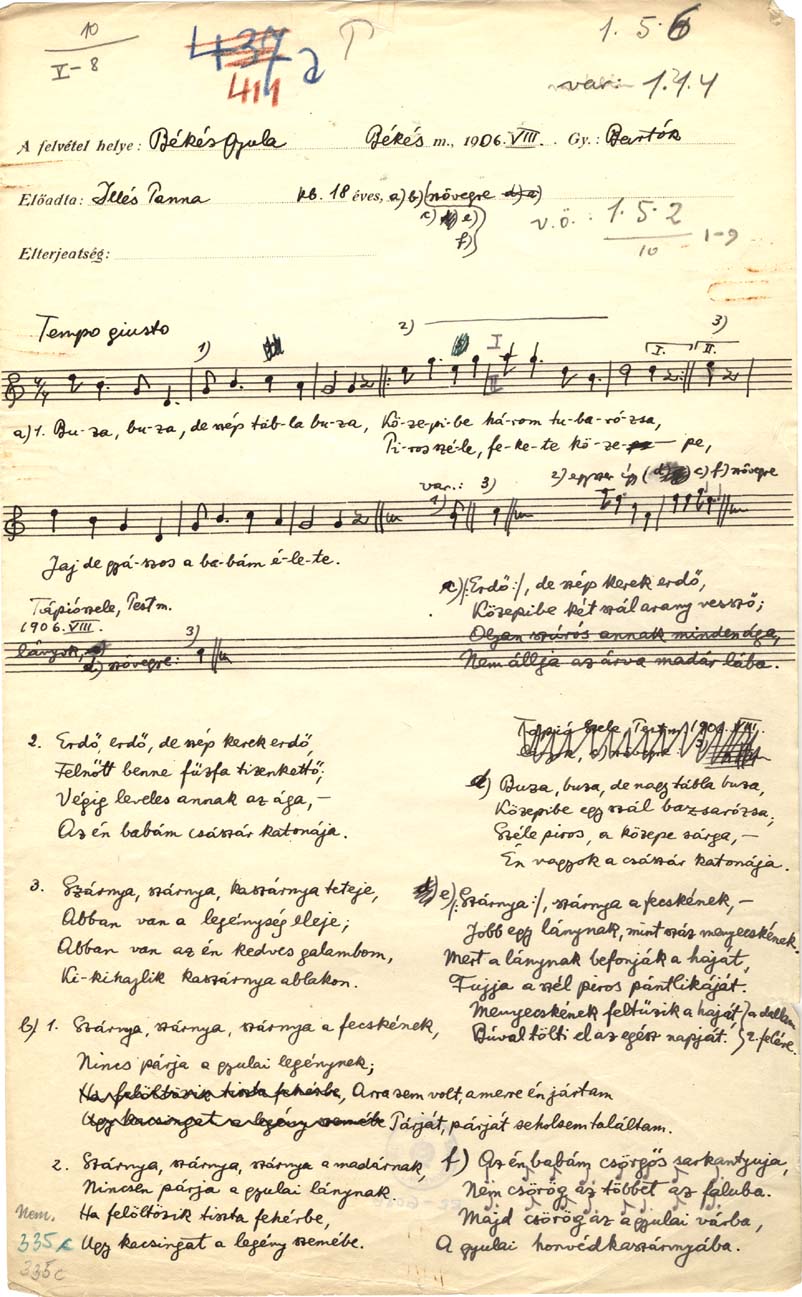 10
V-8
437 a
411
1.5.6
var: 1.1.4
A felvétel helye: Békésgyula Békés m., 1906. VIII. Gy.: Bartók
Előadta: Illés Panna kb. 18 éves, a) b) (szövegre d) a)
c) e)
f)
v.ö.: 1.5.2
10 1-9
Elterjeatség:
Tempo giusto
1) 2) I II 3)
I. II.
a) 1. Bu-za, bu-za, de szép táb-la bu-za, Kö-ze-pi-be há-rom tu-ba-ró-zsa,
Pi-ros szé-le, fe-ke-te kö-ze- pe,
var.: 1) 3) 2) egyszer így (d) c) f) szövegre
Jaj de gyá-szos a ba-bám é-le-te.
Tápiószele, Pest m.
1906. VIII.
lányok, d) szövegre: 3)
c) /:Erdő:/, de szép kerek erdő,
Közepibe két szál arany vessző;
Olyan szúrós annak minden ága,
Nem állja az árva madár lába.
2. Erdő, erdő, de szép kerek erdő,
Felnőtt benne fűzfa tizenkettő;
Végig leveles annak az ága, –
Az én babám császár katonája.
Tápió Szele, Pest m. 1906. VIII.
d) Buza, buza, de nagy tábla buza,
Közepibe egy szál bazsarózsa;
Széle piros, a közepe sárga, –
Én vagyok a császár katonája.
3. Szárnya, szárnya, kaszárnya teteje,
Abban van a legénység eleje;
Abban van az én kedves galambom,
Ki-kihajlik kaszárnya ablakon.
e) /:Szárnya:/, szárnya a fecskének, –
Jobb egy lánynak, mint száz menyecskének.
Mert a lánynak befonják a haját,
Fujja a szél piros pántlikáját.
Menyecskének feltűzik a haját, } a dallam
Búval tölti el az egész napját. } 2. felére.
b) 1. Szárnya, szárnya, szárnya a fecskének,
Nincs párja a gyulai legénynek;
Ha felöltözik tiszta fehérbe, Arra sem volt, amerre én jártam
Ugy kacsingat a legény szemébe Párját, párját sehol sem találtam.
2. Szárnya, szárnya, szárnya a madárnak,
Nincsen párja a gyulai lánynak.
Ha felöltözik tiszta fehérbe,
Ugy kacsingat a legény szemébe.
f) Az én babám csörgős sarkantyuja,
Nem csörög az többet az faluba.
Majd csörög az a gyulai várba,
A gyulai honvéd kaszárnyába.
Nem.
335c
335c